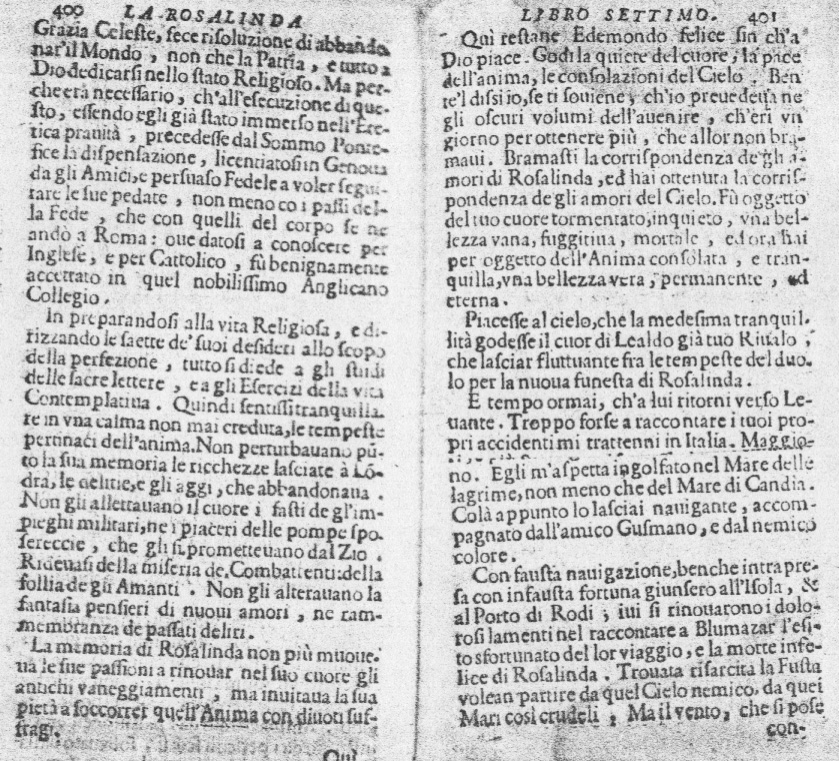 400 LA ROSALINDA
Grazia Celeste, fece risoluzione di abbando
nar'il Mondo, non che la Patria, e tutto a
Dio dedicarsi nello stato Religioso. Ma per-
che era necessario, ch'all'esecuzione di que-
sto, essendo egli già stato immerso nell'Ere-
tica pravità, precedesse dal Sommo Ponte-
fice la dispensazione, licenziatosi in Genoua
da gli Amici, e persuaso Fedele a voler segui-
tare le sue pedate, non meno co i passi del-
la Fede, che con quelli del corpo se ne
andò a Roma: oue datosi a conoscere per
Inglese, e per Cattolico, fù benignamente
accettato in quel nobilissimo Anglicano
Collegio.
In preparandosi alla vita Religiosa, e di-
rizzando le saette de' suoi desideri allo scopo
della perfezione, tutto si diede a gli studi
delle sacre lettere, e a gli Esercizi della vita
Contemplatiua. Quindi sentissi tranquilla-
re in vna calma non mai creduta, le tempeste
pertinaci dell'anima. Non perturbauano pũ-
to la sua memoria le ricchezze lasciate à Lõ-
dra, le delitie, e gli aggi, che abbandonaua.
Non gli allettauano il cuore i fasti de gl'im-
pieghi militari, ne i piaceri delle pompe spo-
sereccie, che gli si prometteuano dal Zio.
Rideuasi della miseria de. Combattenti: della
follia de gli Amanti. Non gli alterauano la
fantasia pensieri di nuoui amori, ne ram-
membranza de passati deliri.
La memoria di Rosalinda non più muoue.
ua le sue passioni a rinouar nel suo cuore gli
antichi vaneggiamenti, ma inuitaua la sua
pietà a soccorrer quell'Anima con diuoti suf-
fragi.
Quì
LIBRO SETTIMO. 401
Quì restane Edemondo felice sin ch'a
Dio piace. Godi la quiete del cuore, la pace
dell'anima, le consolazioni del Cielo. Ben
te'l dissi io, se ti souiene, ch'io preuedeua ne
gli oscuri volumi dell'auenire, ch'eri vn
giorno per ottenere più, che allor non bra-
maui. Bramasti la corrispondenza de gli a-
mori di Rosalinda, ed hai ottenuta la corris-
pondenza de gli amori del Cielo. Fù oggetto
del tuo cuore tormentato, inquieto, vna bel-
lezza vana, fuggitiua, mortale, ed ora hai
per oggetto dell'Anima consolata, e tran-
quilla, vna bellezza vera, permanente, ed
eterna.
Piacesse al cielo, che la medesima tranquil.
lità godesse il cuor di Lealdo già tuo Riualo;
che lasciar fluttuante fra le tempeste del duo.
lo per la nuoua funesta di Rosalinda.
E tempo ormai, ch'a lui ritorni verso Le-
uante. Troppo forse a raccontare i tuoi pro-
pri accidenti mi trattenni in Italia. Maggio-
no. Egli m'aspetta ingolfato nel Mare delle
lagrime, non meno che del Mare di Candia.
Colà appunto lo lasciai nauigante, accom-
pagnato dall'amico Gusmano, e dal nemico
colore.
Con fausta nauigazione, benche intrapre-
sa con infausta fortuna giunsero all'Isola, &
al Porto di Rodi; iui si rinouarono i dolo-
rosi lamenti nel raccontare a Blumazar l'esi-
to sfortunato del lor viaggio, e la morte infe-
lice di Rosalinda. Trouata risarcita la Fusta
volean partire da quel Cielo nemico, da quei
Mari così crudeli, Ma il vento, che si pose
con-